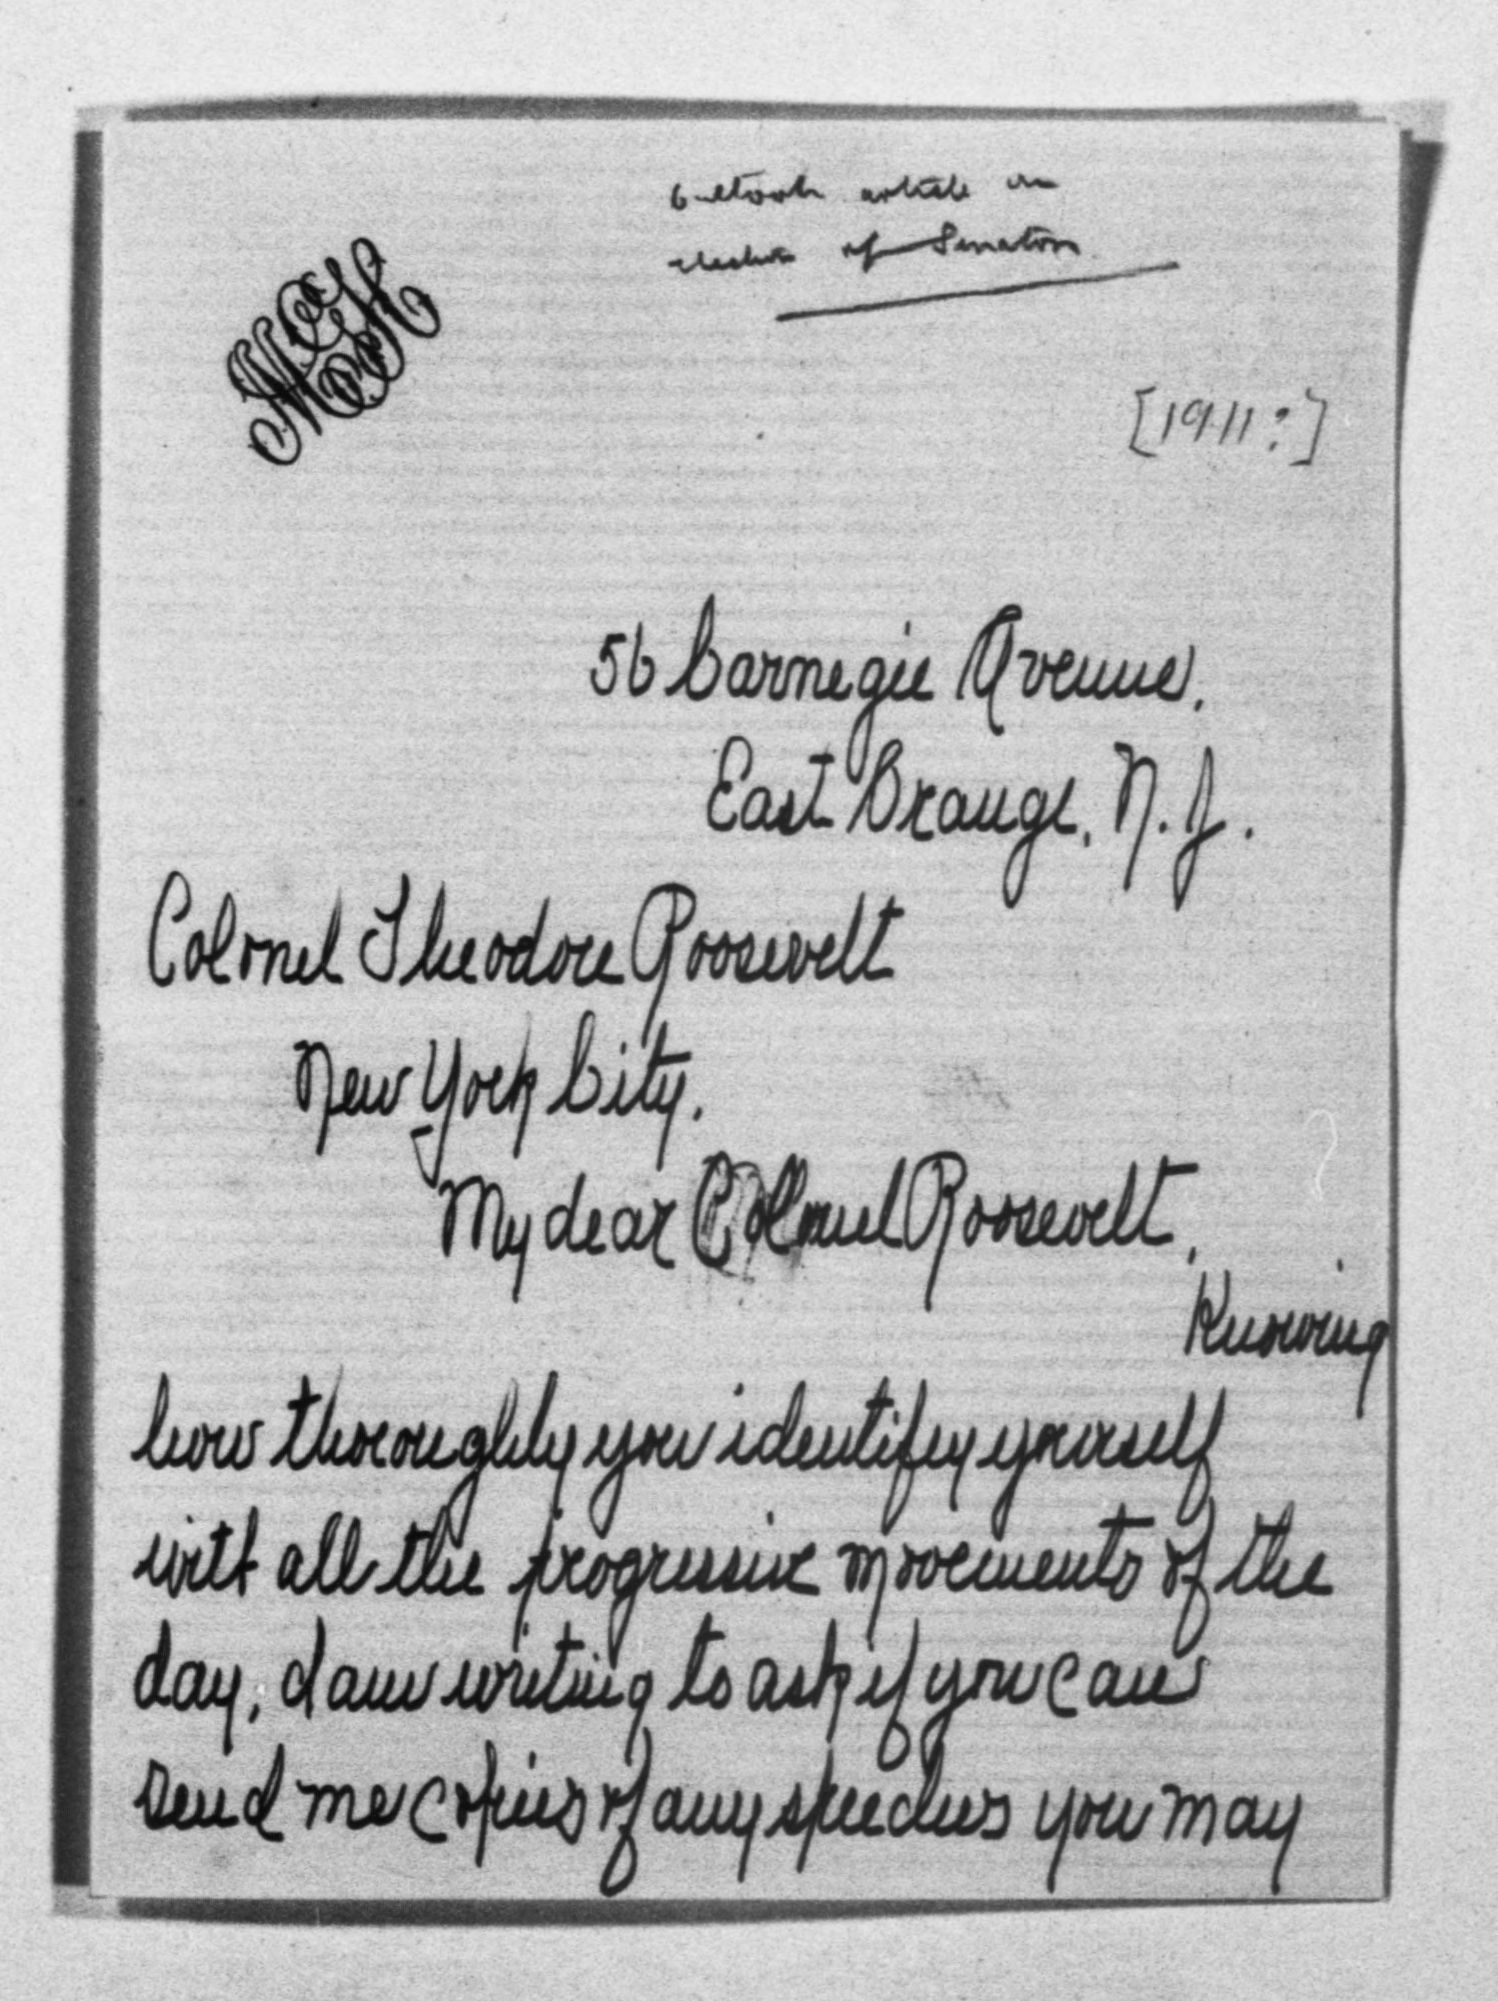 Outlook article on
election of Senators
[1911?]
56 Carnegie Avenue,
East Orange, N. J.
Colonel Theodore Roosevelt
New York City.
My dear Colonel Roosevelt,
Knowing
how thoroughly you identify yourself
with all the progressive movements of the
day, I am writing to ask if you can
send me copies of any speeches you may